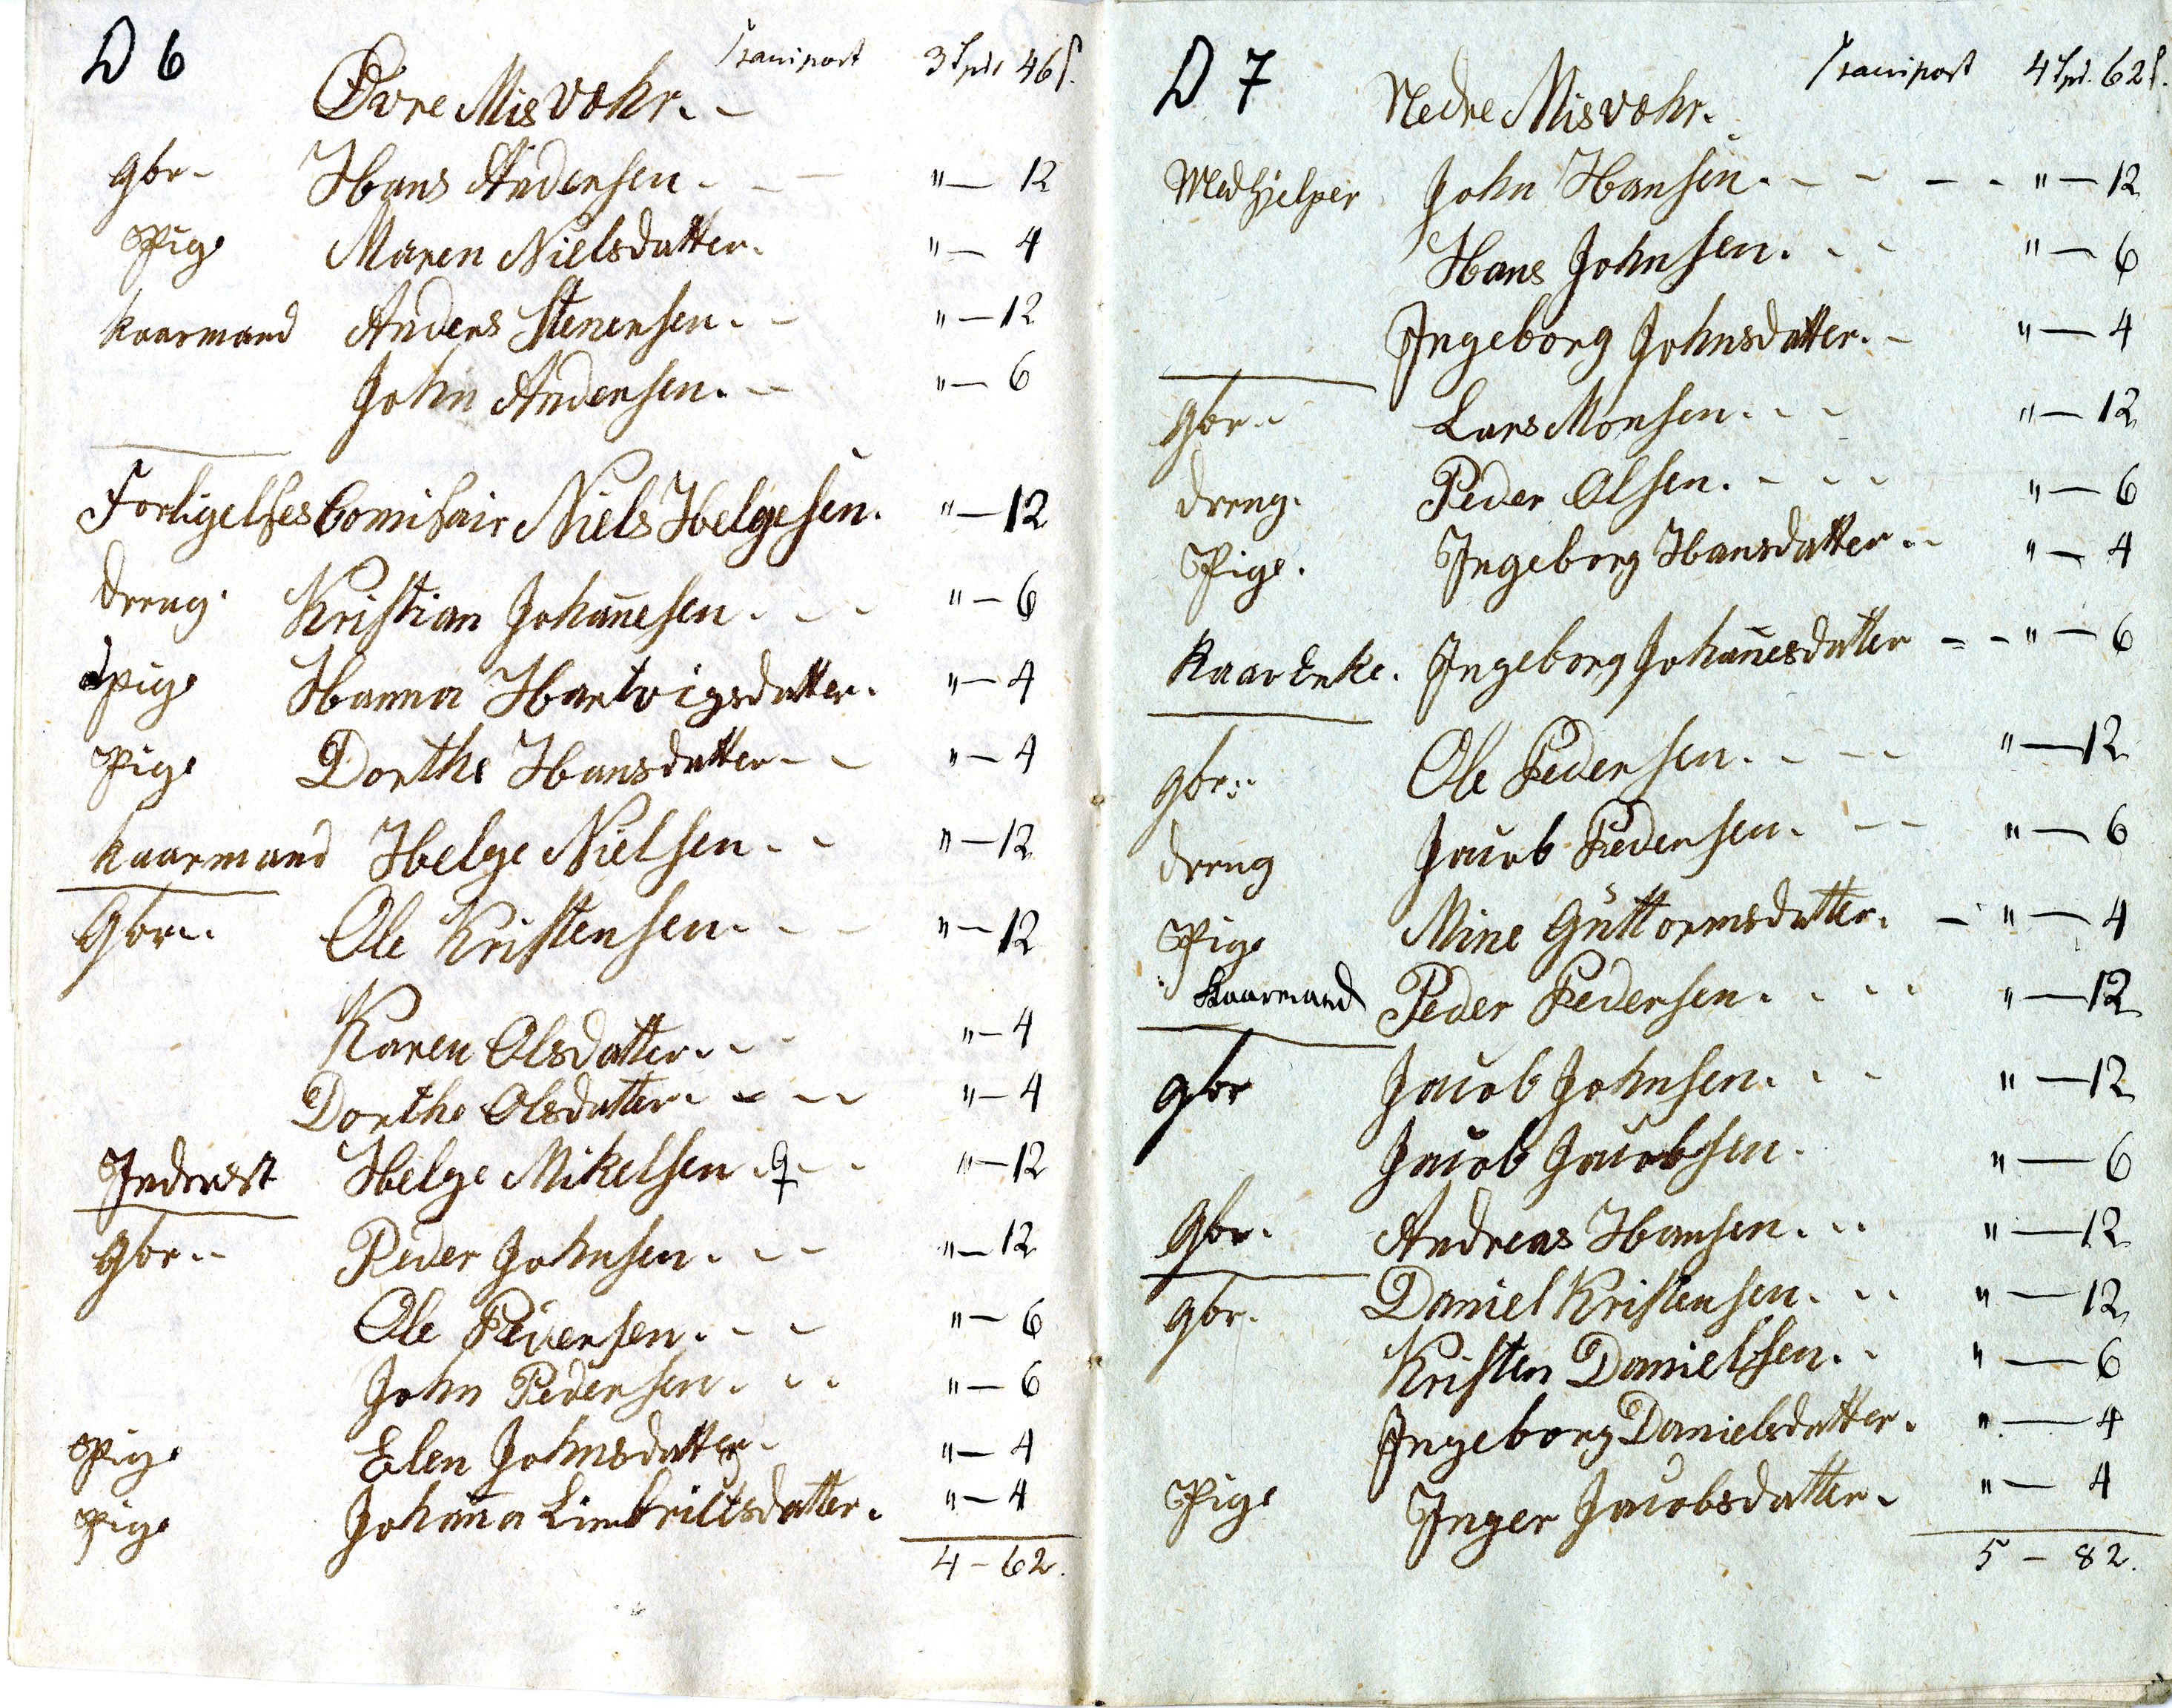 D 6
Transport 3 Spd 46 s.
Øvre Misvæhr. -
Gbr - Hans Andersen. - - " — 12
Pige Maren Nielsdatter. " — 4
Kaarmand Anders Stenersen. - " — 12
John Andersen. - " — 6
Forligelses Comisair Niels Helgesen. " — 12
dreng. Kristian Johan̄esen. - - " — 6
Pige Hanna Hartvigsdatter. " — 4
Pige Dorthe Hansdatter - - " — 4
Kaarmand Helge Nielsen - - " — 12
Gbr.. Ole Kristensen. - - " — 12
Karen Olsdatter. - - " — 4
Dorthe Olsdatter. - - " — 4
Inderst Helge Mikelsen . - - " — 12
Gbr.. Peder Johnsen. - - " — 12
Ole Pedersen. - - " — 6
John Pedersen. - - " — 6
Pige Elen Johnsdatter. " — 4
Pige Johan̄a Limbriltsdatter. " — 4
4 - 62.
D 7
Transport 4 Spd. 62 s.
Nedre Misvæhr.
Medhjelper John Hansen. - - - - " — 12
Hans Johnsen. - - " — 6
Ingeborg Johnsdatter. - " — 4
Gbr.. Lars Monsen. - - " — 12
dreng. Peder Olsen. - - - " — 6
Pige. Ingeborg Hansdatter.. " — 4
Kaar Enke. Ingeborg Johan̄esdatter - - " — 6
Gbr.. Ole Pedersen. - - " — 12
dreng Jacob Pedersen. - - " — 6
Pige Mine Guttormsdatter. - " — 4
Kaarmand Peder Pedersen. . . . " — 12
Gbr Jacob Johnsen. . . " — 12
Jacob Jacobsen. " — 6
Gbr. Andreas Hansen. . . " — 12
Gbr. Daniel Kristensen. . . " — 12
Kristen Danielsen. . " — 6
Ingeborg Danielsdatter. " — 4
Pige Inger Jacobsdatter. " — 4
5 - 82.